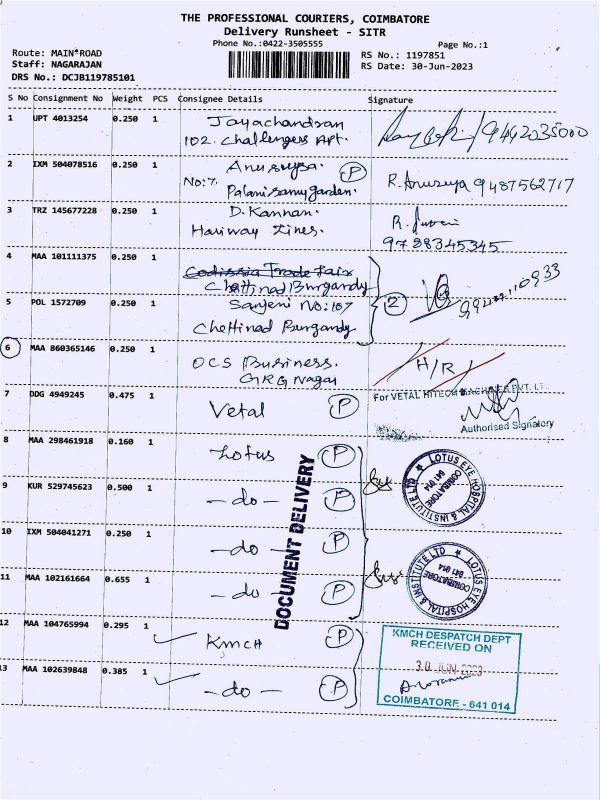 THE PROFESSIONAL COURIERS, COIMBATORE
Delivery Runsheet - SITR
Phone No.:0422-3505555
Page No.:1
Route: MAIN*ROAD
RS No.: 1197851
Staff: NAGARAJAN
RS Date: 30-Jun-2023
DRS No.: DCJB119785101
S No Consignment No Weight PCS Consignee Details Signature
1 UPT 4013254 0.250 1 Jayachandran
102. Challengers Apt. 9442035000
2 IXM 504078516 0.250 1 Anusuya. P
No:7. Palanisamy garden. R. Anusuya 9487562717
3 TRZ 145677228 0.250 1 D. Kannan.
Hariway Lines. R.
9728345345
4 MAA 101111375 0.250 1 Codissia Trade Fair
Chettinad Burgandy
5 POL 1572709 0.250 1 Sanjeni No:107 2
Chettinad Burgandy
6 MAA 860365146 0.250 1 OCS Business. H/R
GRG Nagar
7 DDG 4949245 0.475 1 Vetal P
For VETAL HITECH MACHINES PVT. LT.
Authorised Signatory
8 MAA 298461918 0.160 1 Lotus P
9 KUR 529745623 0.500 1 - do - P
LOTUS EYE HOSPITAL & INSTITUTE LTD
COIMBATORE
641 014
10 IXM 504041271 0.250 1 - do - P
11 MAA 102161664 0.655 1 - do - P
LOTUS EYE HOSPITAL & INSTITUTE LTD
COIMBATORE
641 014
DOCUMENT DELIVERY
12 MAA 104765994 0.295 1 KMCH P
13 MAA 102639848 0.385 1 - do - P
KMCH DESPATCH DEPT
RECEIVED ON
30 JUN 2023
COIMBATORE - 641 014